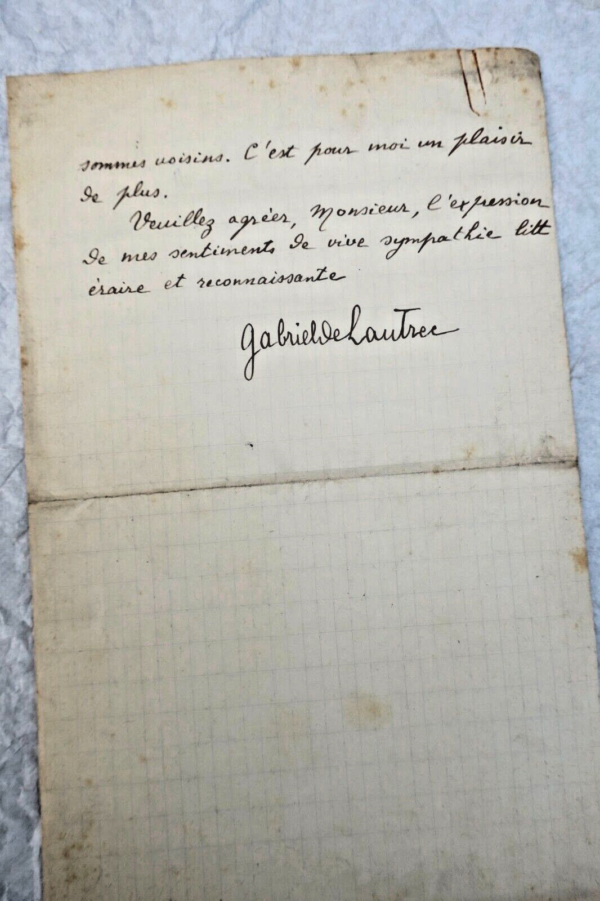 sommes voisins. C'est pour moi un plaisir
de plus.
Veuillez agréer, Monsieur, l'expression
de mes sentiments de vive sympathie litt
éraire et reconnaissante
Gabriel de Lautrec